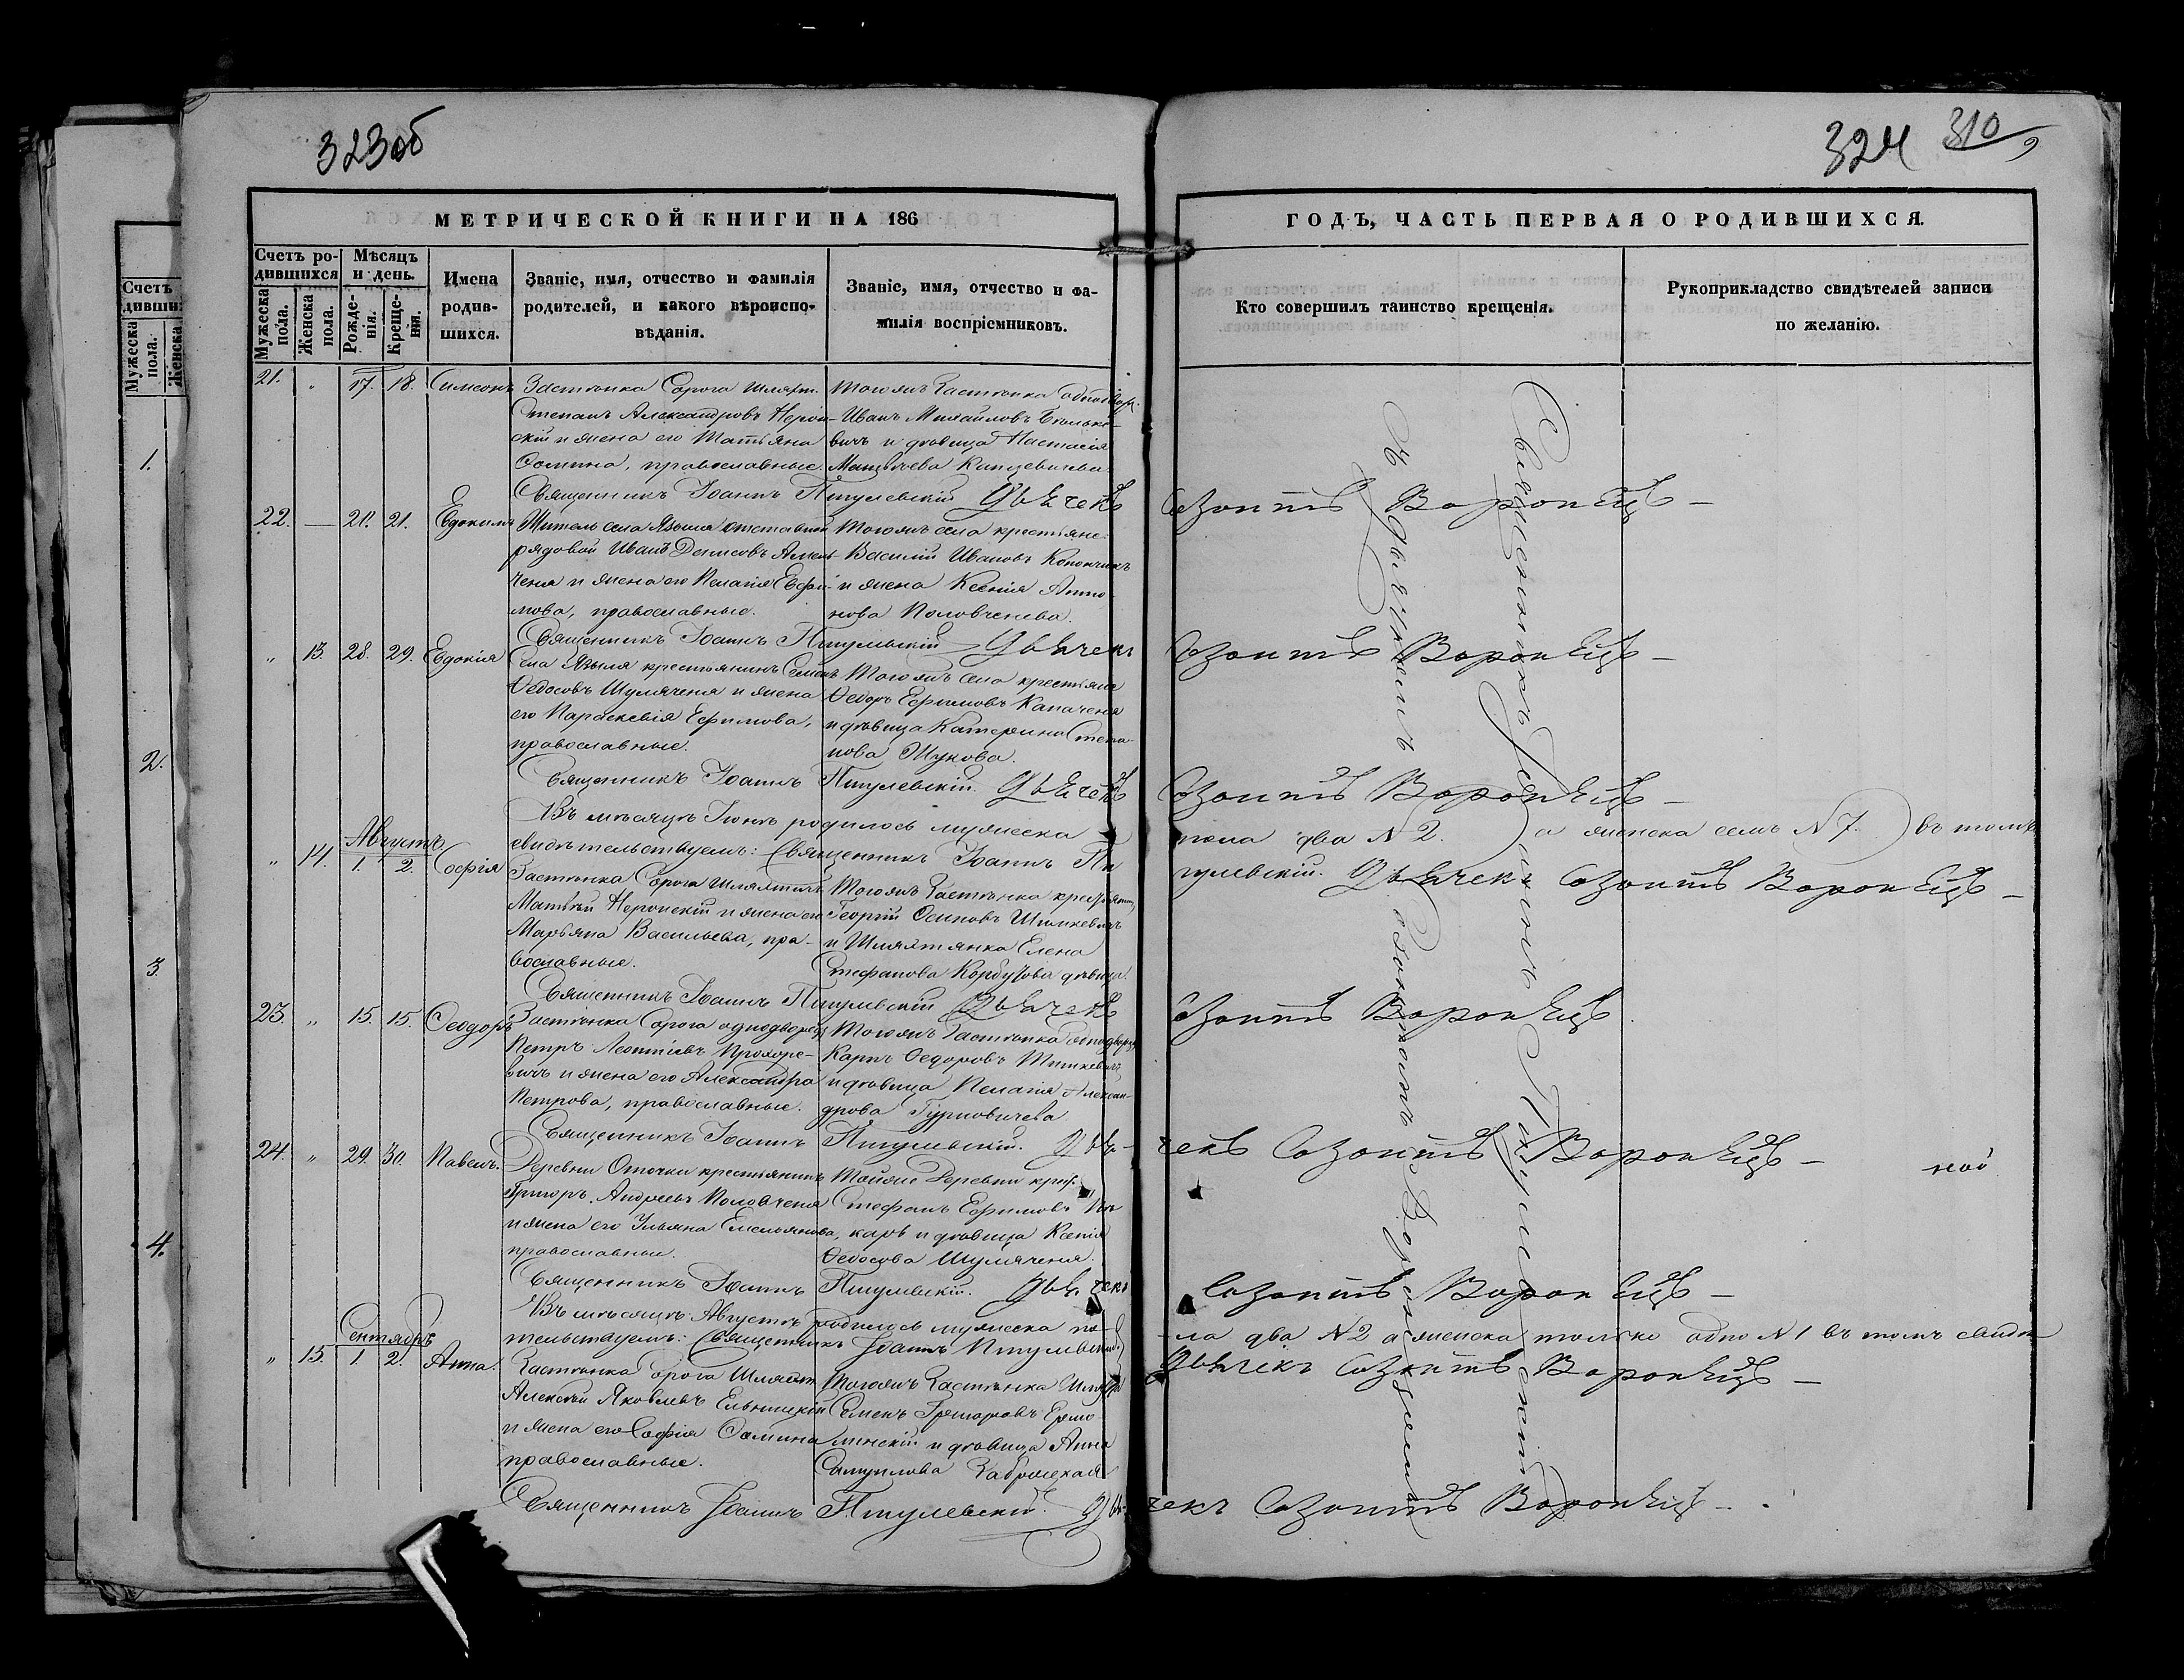 323об
324 310
МЕТРИЧЕСКОЙ КНИГИ НА 186
ГОДЪ, ЧАСТЬ ПЕРВАЯ О РОДИВШИХСЯ.
Счетъ родившихся
Мужеска пола.
Женска пола.
Мѣсяцъ и день.
Рожденія.
Крещенія.
Имена родившихся.
Званіе, имя, отчество и фамилія
родителей, и какого вѣроиспо-
вѣданія.
Званіе, имя, отчество и фа-
милія воспріемниковъ.
Кто совершилъ таинство крещенія.
Рукоприкладство свидѣтелей записи
по желанію.
Счетъ
дивших
Мужеска пола.
Женска
1.
2.
3.
4.
21. " 17. 18. Симеонъ
Застѣнка Сорога шляхт.
Степанъ Александровъ
скій и жена его Татьяна
Осипна, православные.
Тогожъ Застѣнка однодвор.
Иванъ Михайловъ
вичъ и дѣвица Настасія
Матвѣева
Священникъ Іоаннъ Пигулевскій Дьячекъ Созонтъ Воронецъ
22. — 21. 21. Евдокимъ
Житель села Языля отставной
рядовой Иванъ Денисовъ
ченя и жена его Пелагія Евфи-
мова, православные.
Тогожъ села крестьяне
Василій Ивановъ Конончикъ
и жена Ксенія Анто-
нова Половченева.
Священникъ Іоаннъ Пигулевскій Дьячекъ Созонтъ Воронецъ
" 13. 28. 29. Евдокія
Села Языля крестьянинъ Семенъ
Ѳедосовъ Шуляченя и жена
его Параскевія Ефимова,
православные.
Тогожъ села крестьяне
Ѳедоръ Ефимовъ Капаченя
и дѣвица Катерина Степа-
нова Жукова.
Священникъ Іоаннъ Пигулевскій. Дьячекъ Созонтъ Воронецъ
Въ мѣсяцѣ родилось мужеска пола два N 2. а женска семь N 7. въ томъ
свидѣтельствуемъ: Священникъ Іоаннъ Пигулевскій. Дьячекъ Созонтъ Воронецъ
Августъ
" 14. 1. 2. Софія
Застѣнка Сорога шляхтичъ
Матвѣй Неронскій и жена его
Марьяна Васильева, пра-
вославные.
Тогожъ Застѣнка
Георгій Осиповъ Шишкевичъ
и Шляхтянка Елена
Стефанова Корбутова дѣвица.
Священникъ Іоаннъ Пигулевскій Дьячекъ Созонтъ Воронецъ
23. " 15. 15. Ѳеодоръ
Застѣнка Сорога однодворецъ
Петръ Леонтіевъ Прохоре-
вичъ и жена его Александра
Петрова, православные.
Тогожъ Застѣнка однодворецъ
Карпъ Ѳедоровъ Шишкевичъ
и дѣвица Пелагія Алексан-
дрова Гурновичева
Священникъ Іоаннъ Пигулевскій. Дьячекъ Созонтъ Воронецъ
24. " 29. 30. Павелъ.
Деревни Оточки крестьянинъ
Григор. Андреевъ Половченя
и жена его Ульяна Емельянова,
православные.
Тойже Деревни крест.
Стефанъ Ефимовъ
каръ и дѣвица Ксенія
Ѳедосова Шуляченя.
Священникъ Іоаннъ Пигулевскій. Дьячекъ Созонтъ Воронецъ
Въ мѣсяцѣ Августѣ родилось мужеска по-
ла два N 2 а женска только одно N 1 въ томъ свидѣ-
тельствуемъ: Священникъ Іоаннъ Пигулевскій Дьячекъ Созонтъ Воронецъ
Сентябрь
" 15. 1 2. Анна.
Застѣнка Сорога Шляхт.
Алексѣй Яковлевъ Ельницкій
и жена его Софія Осипна
православные.
Тогожъ Застѣнка
Семенъ Григоровъ Ермо-
линскій и дѣвица Анна
Самуилова
Священникъ Іоаннъ Пигулевскій. Дьячекъ Созонтъ Воронецъ
Священникъ Іоаннъ Пигулевскій
съ дьячкомъ Созонтомъ Воронцемъ